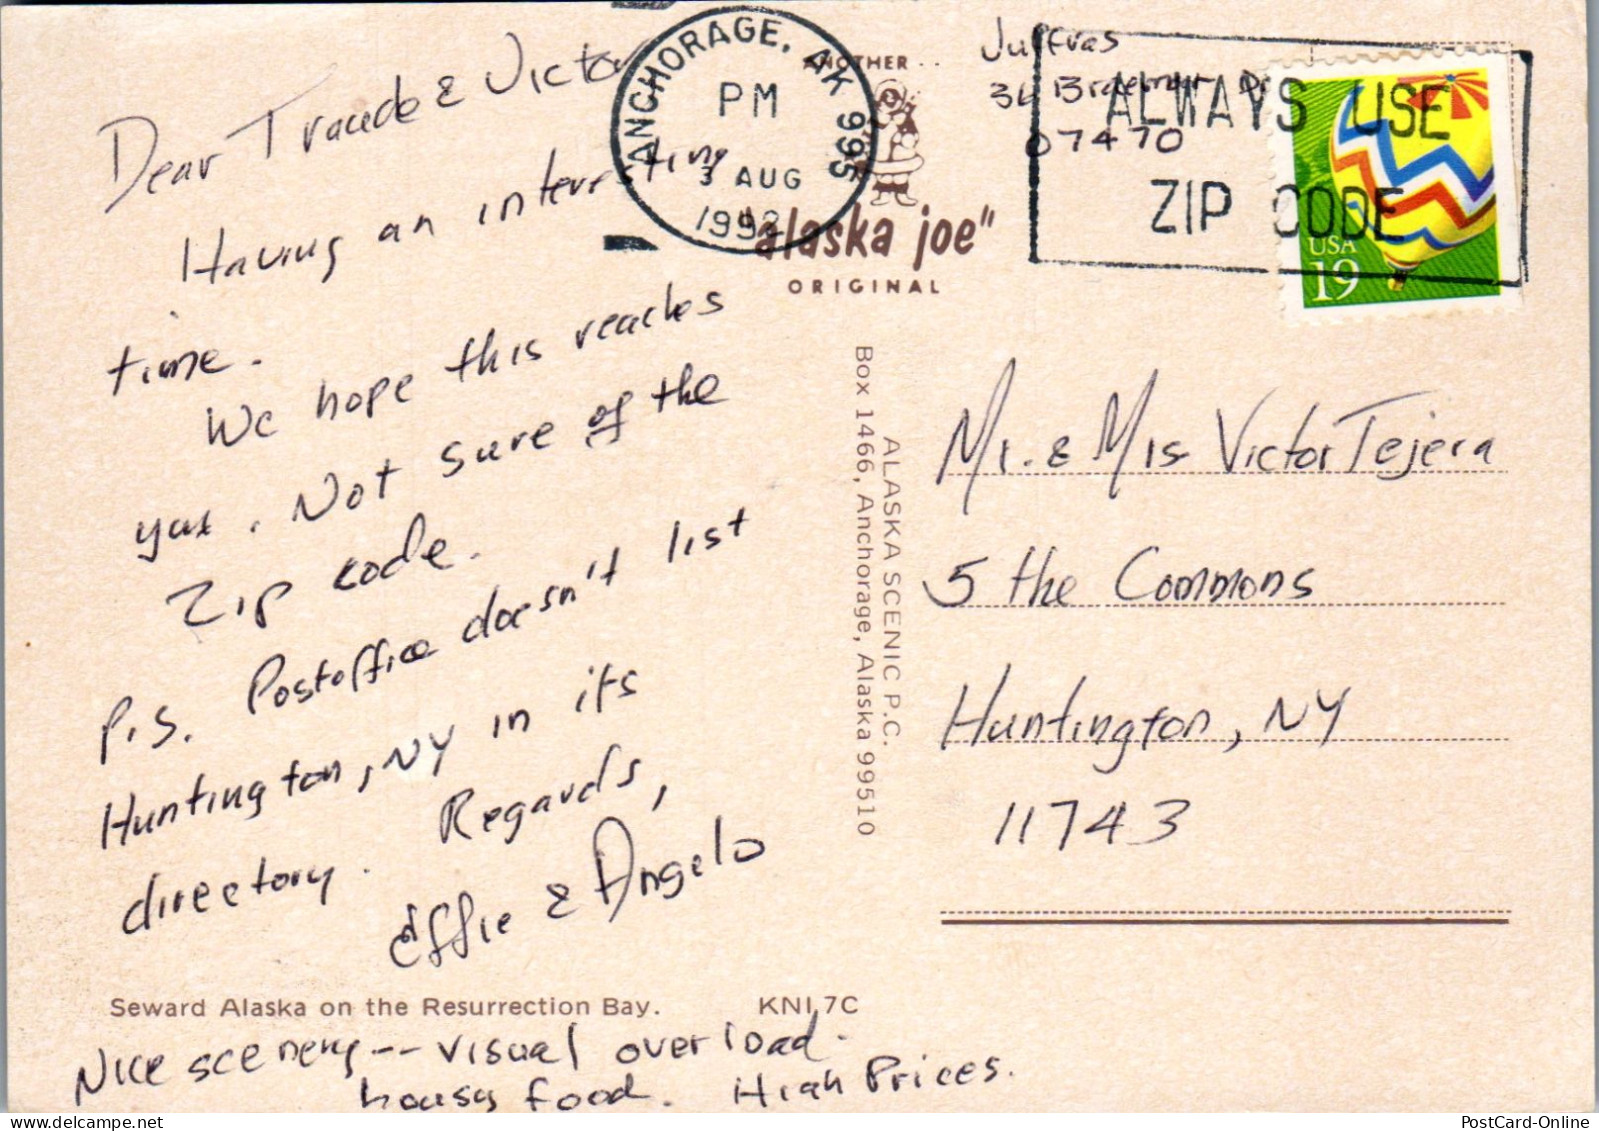 Dear Traude & Victor
Having an interesting
time.
We hope this reaches
you. Not sure of the
Zip code.
P.S. Postoffice doesn't list
Huntington, NY in its
directory. Regards,
Effie & Angelo
Seward Alaska on the Resurrection Bay. KNI 7C
Nice scenery -- visual overload.
lousy food. High Prices.
ANCHORAGE, AK 995
PM
3 AUG
1992
ANOTHER..
"alaska joe"
ORIGINAL
ALASKA SCENIC P.C.
Box 1466, Anchorage, Alaska 99510
Juffras
34 Braemar Dr
07470
ALWAYS USE
ZIP CODE
USA
19
Mr. & Mrs Victor Tejera
5 the Commons
Huntington, NY
11743
PostCard-Online